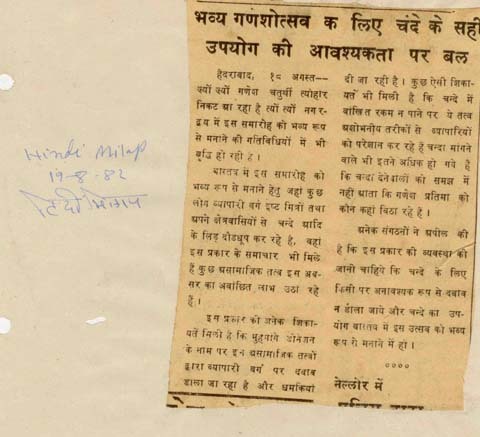 भव्य गणशोत्सव क लिए चंदे के सही
उपयोग की आवश्यकता पर बल
हैदराबाद, १८ अगस्त--
ज्यों ज्यों गणेश चतुर्थी त्योहार
निकट आ रहा है त्यों त्यों नगर-
द्वय में इस समारोह को भव्य रूप
से मनाने की गतिविधियों में भी
वृद्धि हो रही है।
वास्तव में इस समारोह को
भव्य रूप से मनाने हेतु जहां कुछ
लोग व्यापारी वर्ग इष्ट मित्रों तथा
अपने क्षेत्रवासियों से चन्दे आदि
के लिए दौडधूप कर रहे है, वहां
इस प्रकार के समाचार भी मिले
हैं कुछ असामाजिक तत्व इस अव-
सर का अवांछित लाभ उठा रहे
हैं।
इस प्रकार की अनेक शिका-
यतें मिली है कि मुहमांगे डोनेशन
के नाम पर इन असामाजिक तत्वों
द्वारा व्यापारी वर्ग पर दबाव
डाला जा रहा है और धमकियां
दी जा रही है। कुछ ऐसी शिका-
यतें भी मिली है कि चन्दे में
वांछित रकम न पाने पर ये तत्व
अशोभनीय तरीकों से व्यापारियों
को परेशान कर रहे है चन्दा मांगने
वाले भी इतने अधिक हो गये हैं
कि चन्दा देनेवालों को समझ में
नहीं आता कि गणेश प्रतिमा को
कौन कहां बिठा रहे है।
अनेक संगठनों ने अपील की
है कि इस प्रकार की व्यवस्था की
जानी चाहिये कि चन्दे के लिए
किसी पर अनावश्यक रूप से दबाव
न डाला जाये और चन्दे का उप-
योग वास्तव में इस उत्सव को भव्य
रूप से मनाने में हो।
००००
नेल्लोर में
Hindi Milap
19-8-82
हिंदी मिलाप